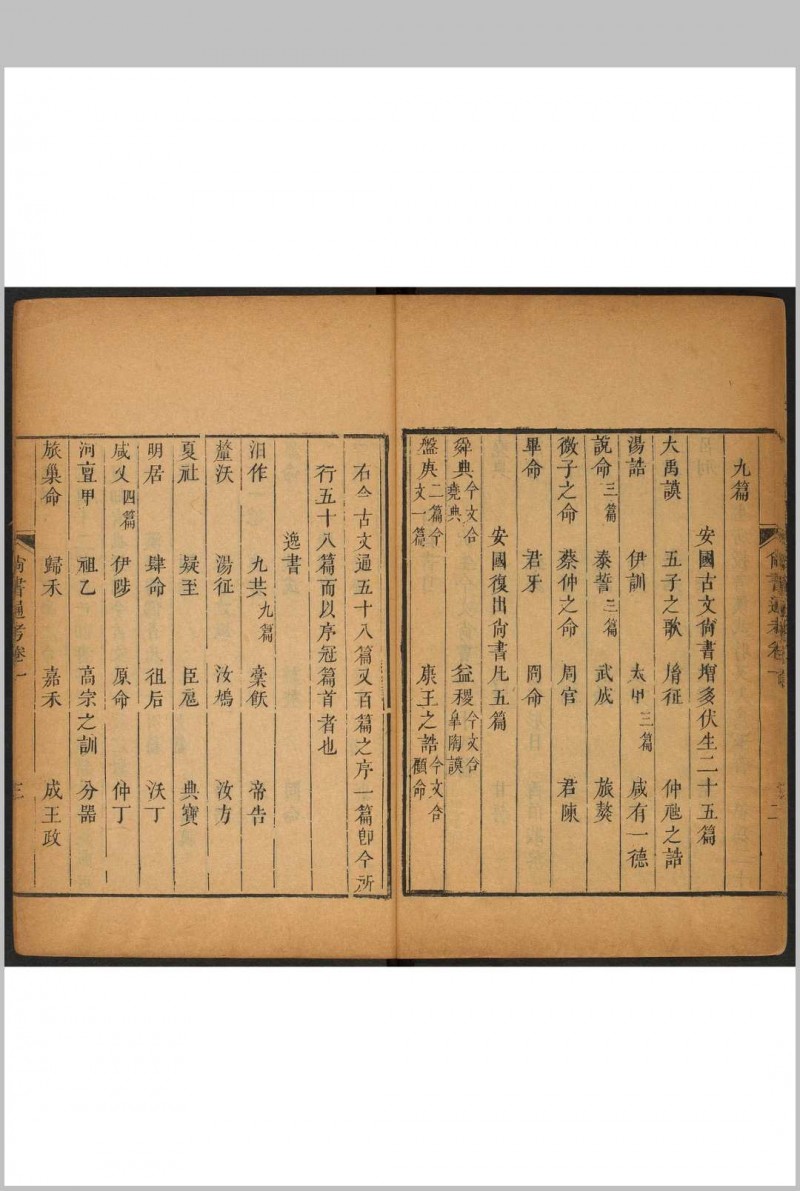 九篇
安國古文尙書增多伏生二十五篇
大禹謨　五子之歌　㣧征　仲虺之誥
湯誥　伊訓　太甲三篇　咸有一德
說命三篇　泰誓三篇　武成　旅獒
微子之命　蔡仲之命　周官　君陳
畢命　君牙　冏命
安國復出尙書凡五篇
舜典今文合堯典　益稷今文合皐陶謨
盤庚二篇今文一篇　康王之誥今文合顧命
尙書通考卷一
二
右今古文通五十八篇又百篇之序一篇卽今所
行五十八篇而以序冠篇首者也
逸書
汨作　九共九篇　槀飫　帝告
釐沃　湯征　汝鳩　汝方
夏社　疑至　臣扈　典寶
明居　肆命　徂后　沃丁
咸乂四篇　伊陟　原命　仲丁
河亶甲　祖乙　高宗之訓　分器
旅巢命　歸禾　嘉禾　成王政
尙書通考卷一
三